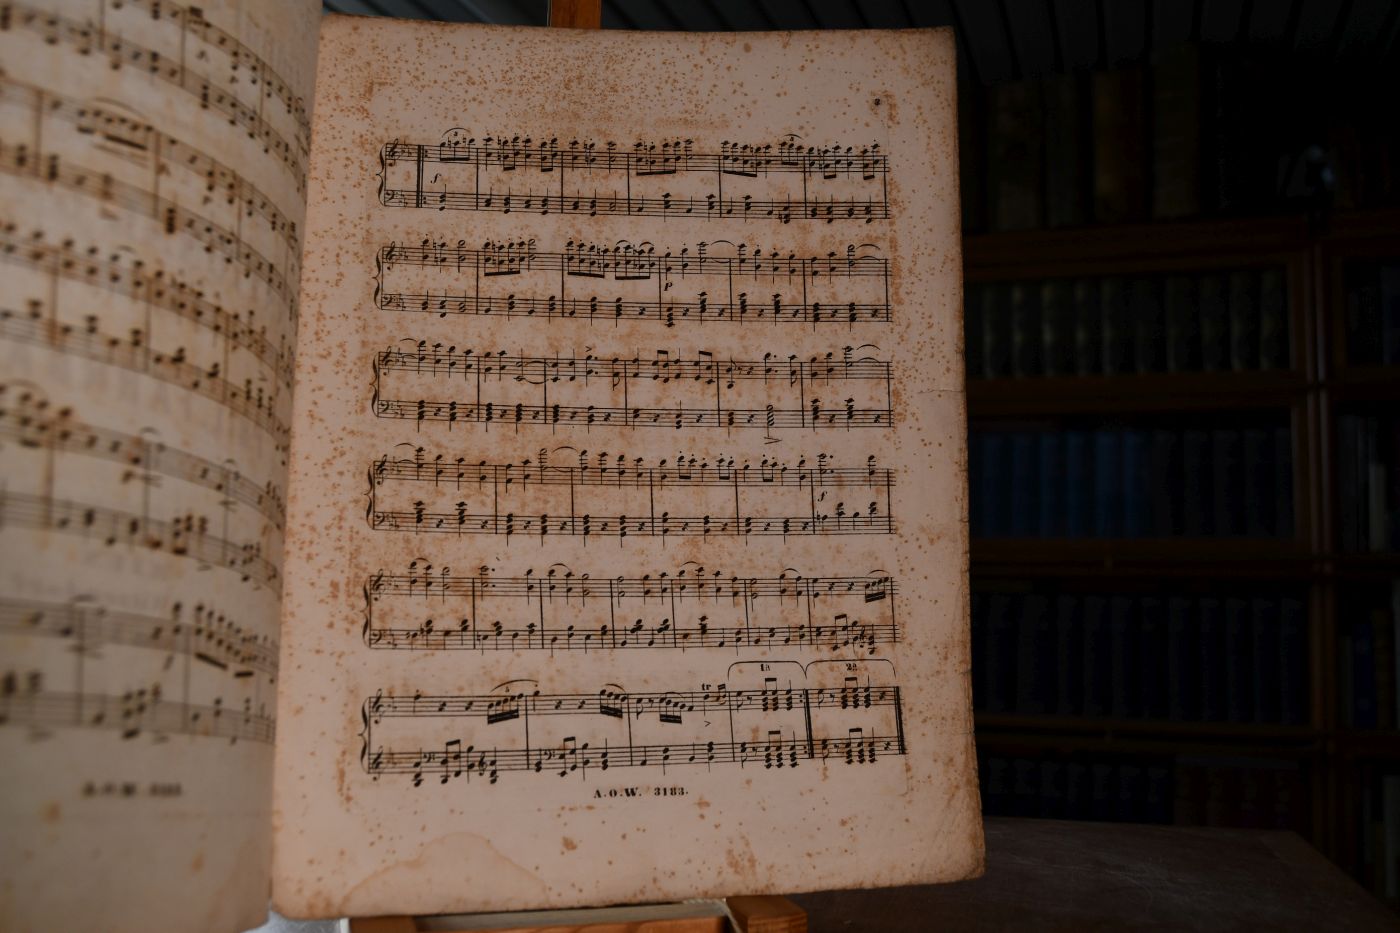 3
f
p
f
1a 2a
tr
A.O.W. 3183.